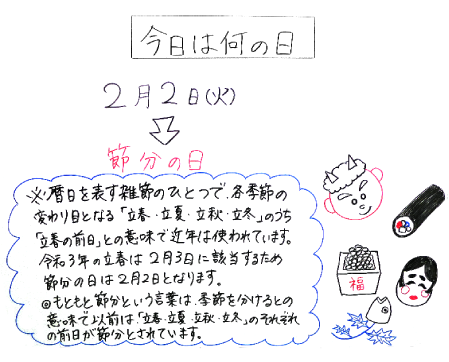 今日は何の日
2月2日(火)
節分の日
※暦日を表す雑節のひとつで、各季節の
変わり目となる「立春・立夏・立秋・立冬」のうち
「立春の前日」との意味で近年は使われています。
令和3年の立春は2月3日に該当するため
節分の日は2月2日となります。
◎もともと節分という言葉は、季節を分けるとの
意味で以前は「立春・立夏・立秋・立冬」のそれぞれ
の前日が節分とされています。
福